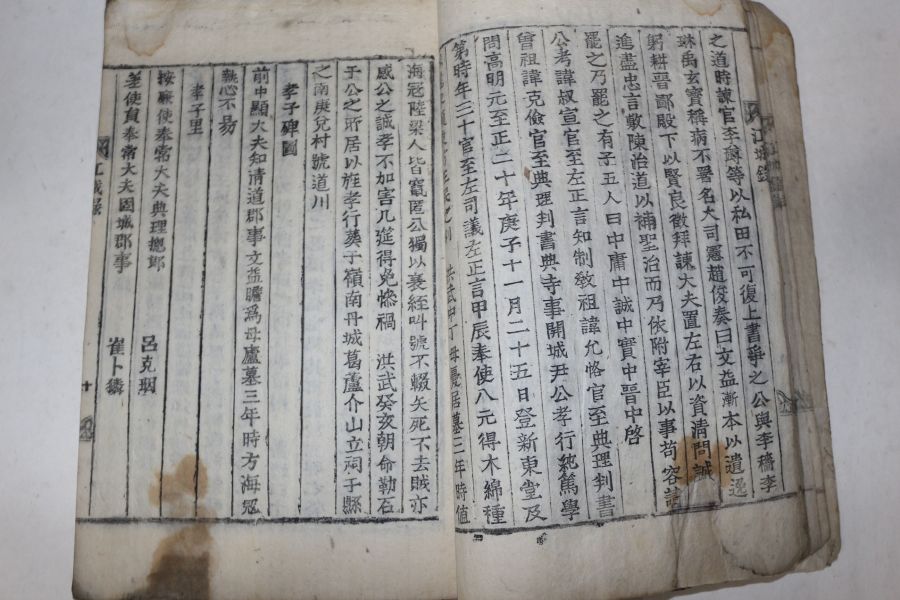 江城錄
之道時諫官李䎖等以私田不可復上書爭之公與李穡李
琳禹玄寶稱病不署名大司憲趙俊奏曰文益漸本以遺逸
躬耕晉鄙殿下以賢良徵拜諫大夫置左右以資清問誠
進盡忠言敷陳治道以補聖治而乃依附宰臣以事苟容請
罷之乃罷之有子五人曰中庸中誠中實中晉中啓
公考諱叔宣官至左正言知制敎祖諱允恪官至典理判書
曾祖諱克儉官至典理判書典寺事開城尹公孝行純篤學
問高明元至正二十年庚子十一月二十五日登新東堂及
第時年三十官至左司議左正言甲辰奉使入元得木綿種
洪武 丁母憂居墓三年時値
海冦陸梁人皆竄匿公獨以衰絰叫號不輟矢死不去賊亦
感公之誠孝不加害几筵得免燬禍 洪武癸亥朝命勒石
于公之所居以旌孝行葬于嶺南丹城葛蘆介山立祠于縣
之南庚兌村號道川
孝子碑圖
前中顯大夫知清道郡事文益瞻爲母廬墓三年時方海冦
熱心不易
孝子里
按廉使奉常大夫典理摠郎 呂克珚
差使員奉常大夫固城郡事 崔卜麟
江城錄
十